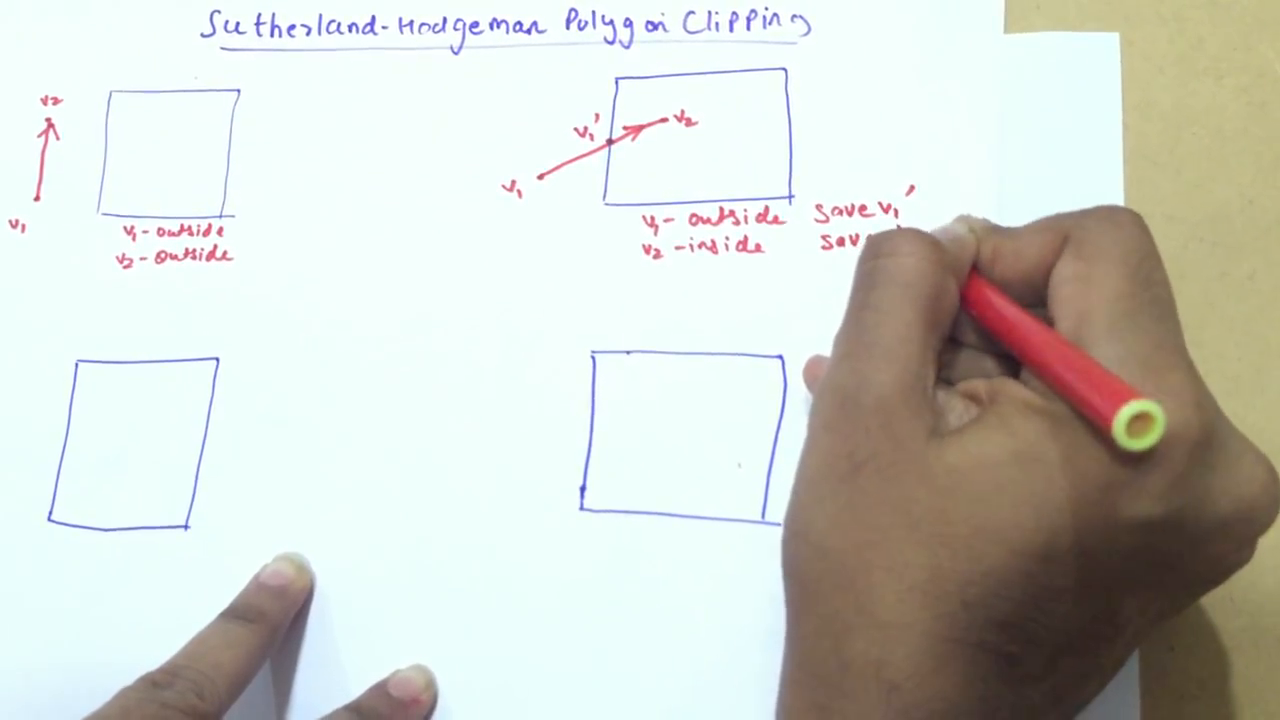 Sutherland-Hodgeman Polygon Clipping
v2
v1
v1 - outside
v2 - outside
v1'
v2
v1
v1 - outside save v1'
v2 - inside